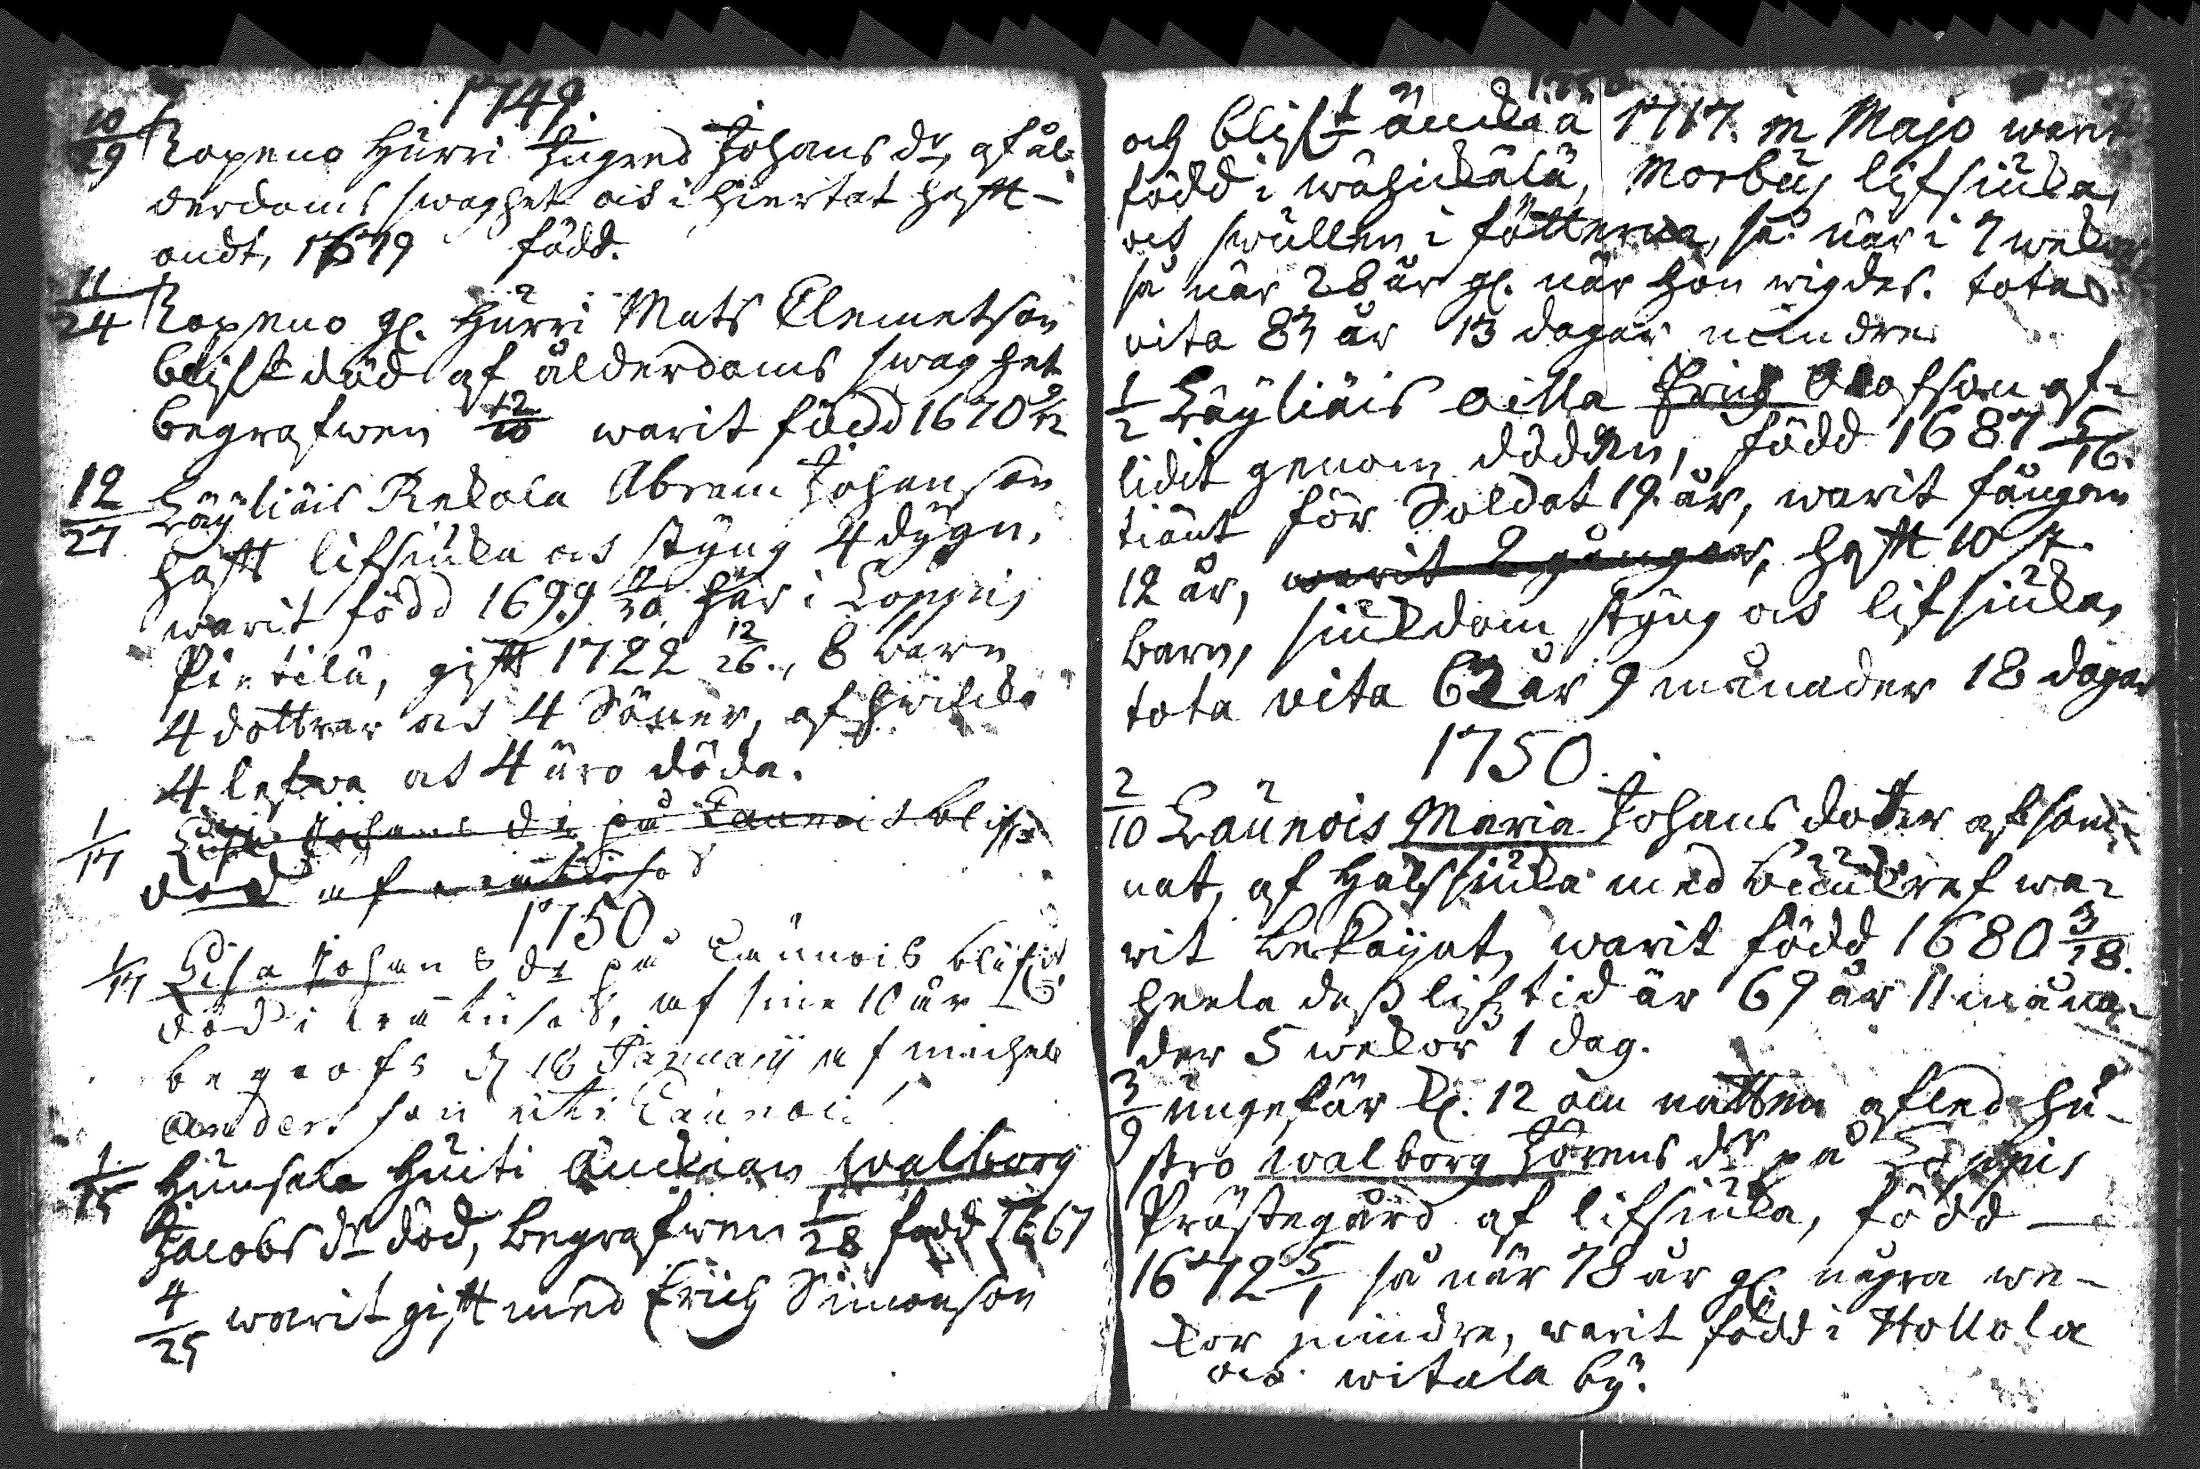 1749.
10/29 Kopeno Hurri Ingred Johans dr, af ål-
derdoms swaghet och i hiertat hafft
ondt, 1679 född.
11/24 Kopeno gl. Hurri Mats Clemetson
blifst död af ålderdoms swaghet
begrafwen 12/10 warit född 1670
12/27 Läyliäis Rekola Abram Johanson
hafft lifsiuka och styng 4 dygn,
warit född 1699 här i Loppis
Pietilä, gifft 1722 12/26., 8 barn
4 dottrar och 4 Söner, af hwilcka
4 lefwa och 4 äro döda.
1/17 Lisa Johans dr på Launois blifst
död af
1750
1/17 Lisa Johans dr på Launois blifst
död i, af sine 10 år
begrofs d 18 January af michel
Anders son uti Launois
1/15 Hunsala Huiti Änckian Walborg
Jacobs dr död, begrafwen 1/28 född 1667
4/25 warit gift med Erich Simonson
och blifst änckia 1717. in Majo warit
född i wähikälä, Morbus lifsiuka,
och swullen i fötterna, så när i 7 wekor
så när 28 år gl. när hon wigdes. tota
vita 83 år 13 dagar mindre
1/2 Läyliäis oilla Erich Olofson af-
lidit genom döden, född 1687 /16.
tiänt för Soldat 19 år, warit fången
12 år, warit 2 gånger, hafft 10 st.
barn, siukdom styng och lifsiuka,
tota vita 62 år 9 månader 18 dagar
1750.
2/10 Launois Maria Johans doter afsom-
nat, af Halssiuka med wa-
rit, warit född 1680 3/18.
heela dess lifstid är 69 år 11 måna-
der 5 wekor 1 dag.
3/9 ungefär kl. 12 om natten afled hu-
stro Walborg Jörens dr på Loppis
Prästegård af lifsiuka, född
1672 5/1 så när 78 år gl några we-
kor mindre, warit född i Hollola
och witala by.